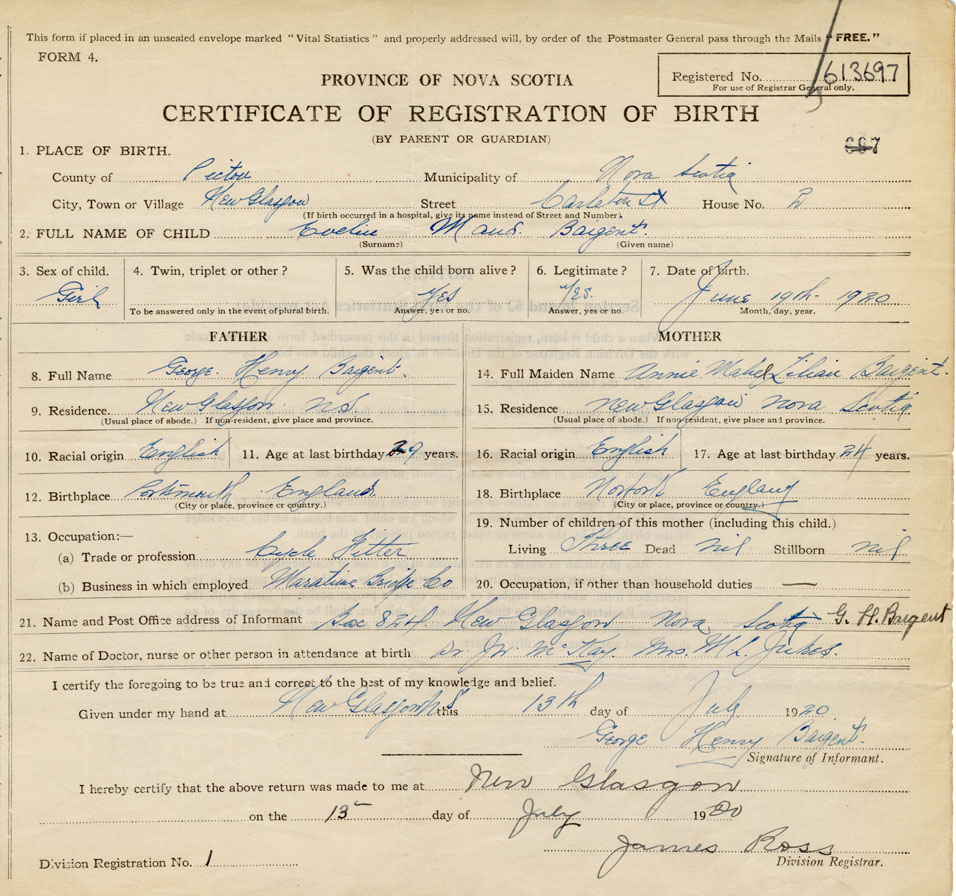 This form if placed in an unsealed envelope marked "Vital Statistics" and properly addressed will, by order of the Postmaster General pass through the Mails "FREE."
FORM 4.
Registered No. 613697
For use of Registrar General only.
PROVINCE OF NOVA SCOTIA
CERTIFICATE OF REGISTRATION OF BIRTH
(BY PARENT OR GUARDIAN)
1. PLACE OF BIRTH.
County of Pictou Municipality of Nova Scotia
City, Town or Village New Glasgow Street Carleton St House No.
(If birth occurred in a hospital, give its name instead of Street and Number).
2. FULL NAME OF CHILD Evelin Maud. Bargent.
(Surname) (Given name)
3. Sex of child. 4. Twin, triplet or other? 5. Was the child born alive? 6. Legitimate? 7. Date of birth.
Girl Yes Yes. June 19th. 1920
To be answered only in the event of plural birth. Answer, yes or no. Answer, yes or no. Month, day, year.
FATHER MOTHER
8. Full Name George. Henry Bargent. 14. Full Maiden Name Annie Mabel Lilian Bargent.
9. Residence. New Glasgow. N.S. 15. Residence New Glasgow Nova Scotia
(Usual place of abode.) If non-resident, give place and province. (Usual place of abode.) If non-resident, give place and province.
10. Racial origin English 11. Age at last birthday 29 years. 16. Racial origin English 17. Age at last birthday 24 years.
12. Birthplace Portsmouth England. 18. Birthplace England
(City or place, province or country.) (City or place, province or country.)
19. Number of children of this mother (including this child.)
13. Occupation:—
(a) Trade or profession Cycle Fitter Living Three Dead Nil Stillborn nil
(b) Business in which employed Maratime Bridge Co 20. Occupation, if other than household duties —
21. Name and Post Office address of Informant Box 824. New Glasgow Nova Scotia G. H. Bargent
22. Name of Doctor, nurse or other person in attendance at birth Dr. Jn McKay Mrs. M L Jukes.
I certify the foregoing to be true and correct to the best of my knowledge and belief.
Given under my hand at New Glasgow NS this 13th day of July 1920
George Henry Bargent.
Signature of Informant.
I hereby certify that the above return was made to me at New Glasgow
on the 15 day of July 1920
James Ross
Division Registration No. 1 Division Registrar.